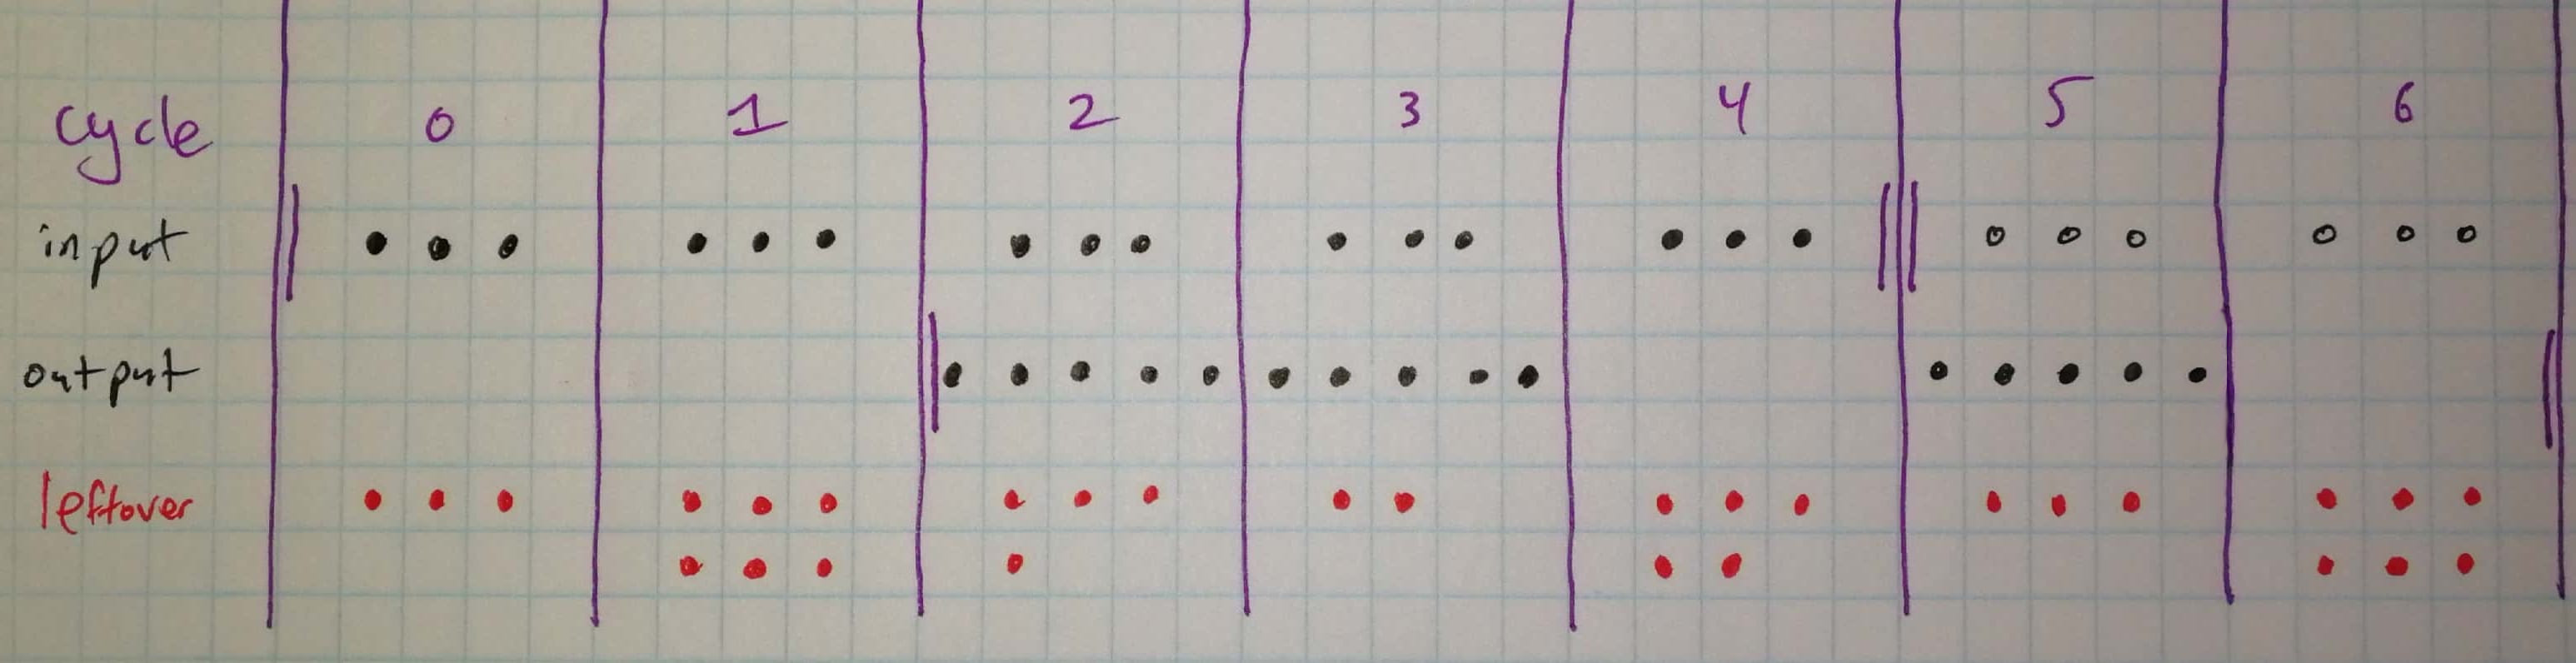 cycle 0 1 2 3 4 5 6
input
output
leftover